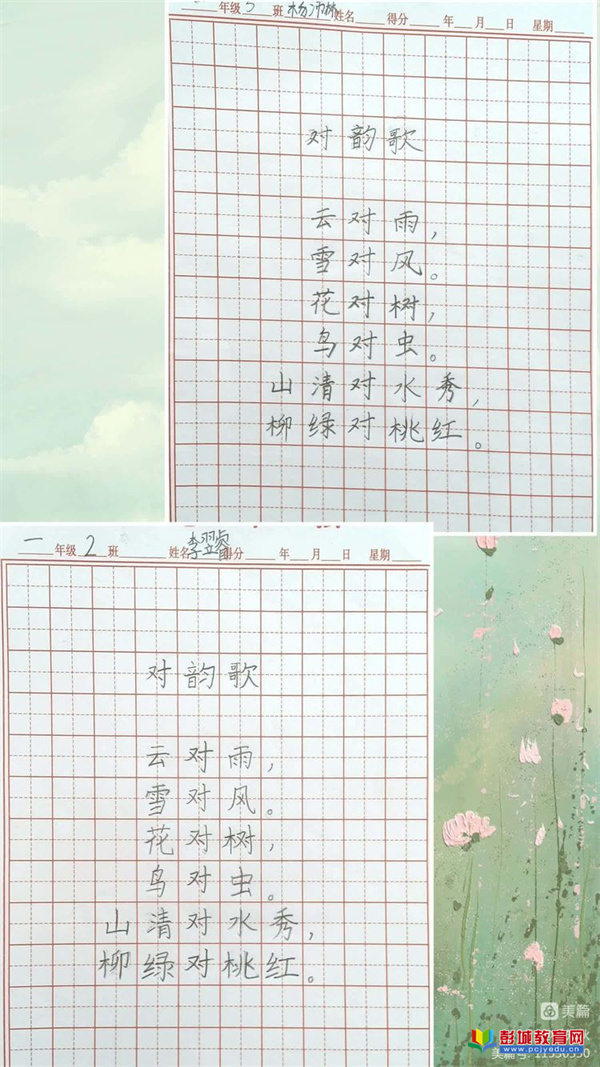 年级 3 班 姓名 得分 年 月 日 星期
对韵歌
云对雨，
雪对风。
花对树，
鸟对虫。
山清对水秀，
柳绿对桃红。
一 年级 2 班 姓名 李翌睿 得分 年 月 日 星期
对韵歌
云对雨，
雪对风。
花对树，
鸟对虫。
山清对水秀，
柳绿对桃红。
美篇
彭城教育网
www.pcjyedu.cn